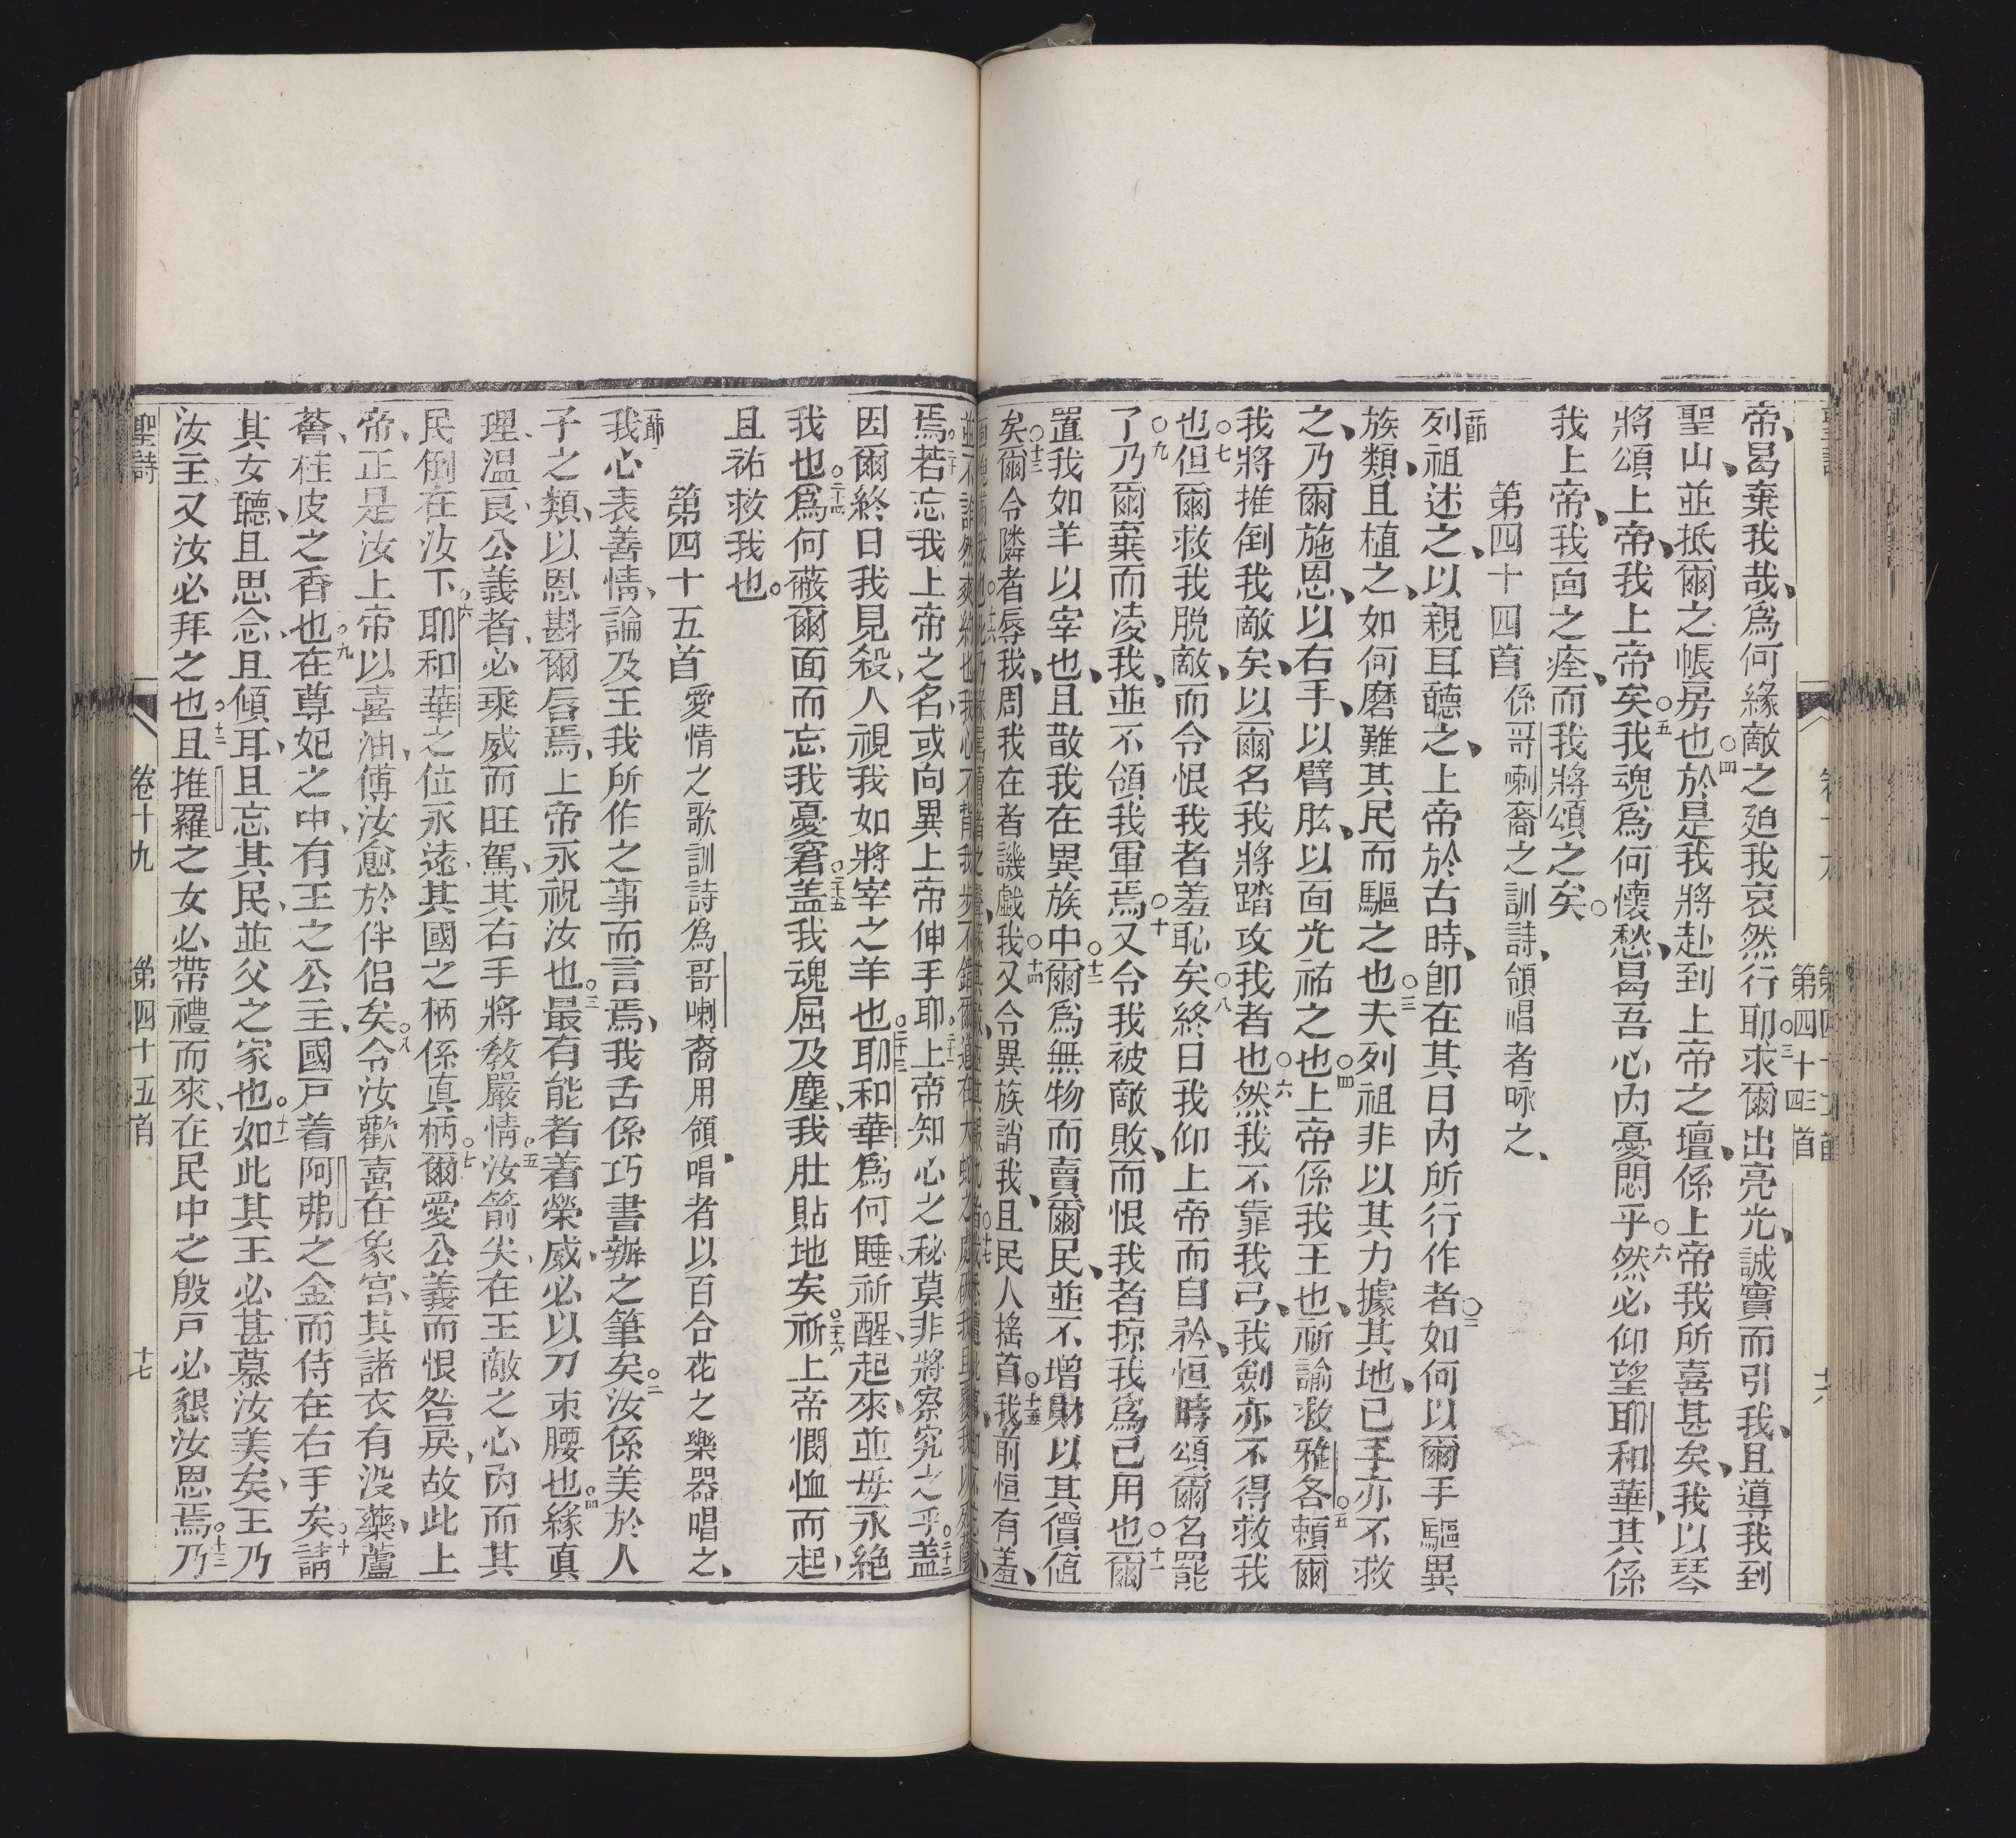 帝、曷棄我哉、爲何緣敵之廹我哀然行○三耶求爾出亮光、誠實而引我、且導我到
聖山、並抵爾之帳房也○四於是我將赴到上帝之壇、係上帝我所喜甚矣、我以琴
將頌上帝、我上帝矣○五我魂爲何懷愁、曷吾心內憂悶乎○六然必仰望耶和華、其係
我上帝、我面之痊、而我將頌之矣○
第四十四首 係哥喇裔之訓詩、領唱者咏之、
一節列祖述之、以親耳聽之、上帝於古時、卽在其日內所行作者○二如何以爾手驅異
族類、且植之、如何磨難其民而驅之也○三夫列祖非以其力據其地、已手亦不救
之、乃爾施恩、以右手、以臂肱、以面光祐之也○四上帝係我王也、祈諭救雅各○五賴爾
我將推倒我敵矣、以爾名我將踏攻我者也○六然我不靠我弓、我劍亦不得救我
○七也但爾救我脫敵、而令恨我者羞恥矣○八終日我仰上帝而自矜、恒時頌爾名罷
○九了乃爾棄而凌我、並不領我軍焉○十又令我被敵敗、而恨我者掠我爲已用也○十一爾
置我如羊以宰也、且散我在異族中○十二爾爲無物而賣爾民、並不增財以其價値
矣○十三爾令隣者辱我、周我在者譏戲我○十四又令異族誚我、且民人搖首○十五我前恒有羞、
焉○二十若忘我上帝之名、或向異上帝伸手耶○二十一上帝知心之秘、莫非將察究之乎○二十二盖
因爾終日我見殺、人視我如將宰之羊也○二十三耶和華爲何睡、祈醒起來、並毋永絕
我也○二十四爲何蔽爾面而忘我憂窘○二十五盖我魂屈及塵、我肚貼地矣○二十六祈上帝憫恤而起、
且祐救我也。
第四十五首 愛情之歌訓詩爲哥喇裔用領唱者以百合花之樂器唱之、
一節我心表善情、論及王我所作之事而言焉、我舌係巧書辦之筆矣○二汝係美於人
子之類、以恩斟爾唇焉、上帝永祝汝也○三最有能者着榮威、必以刀束腰也○四緣眞
理、温良、公義者、必乘威而旺駕、其右手將敎嚴情○五汝箭尖、在王敵之心內而其
民倒在汝下○六耶和華之位永遠、其國之柄係眞柄○七爾愛公義而恨咎戾、故此上
帝、正是汝上帝以喜油、傅汝愈於伴侶矣○八令汝歡喜在象宮、其諸衣有沒藥、蘆
薈、桂皮之香也○九在尊妃之中、有王之公主、國戸着阿弗之金而侍在右手矣○十請
其女聽、且思念、且傾耳、且忘其民、並父之家也○十一如此其王必甚慕汝美矣、王乃
汝主、又汝必拜之也○十二且推羅之女必帶禮而來、在民中之殷戸必懇汝恩焉○十三乃
聖詩 卷十九 第四十五首 十七